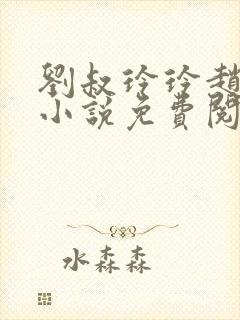 劉叔玲玲趙
小說免費閱
水森森